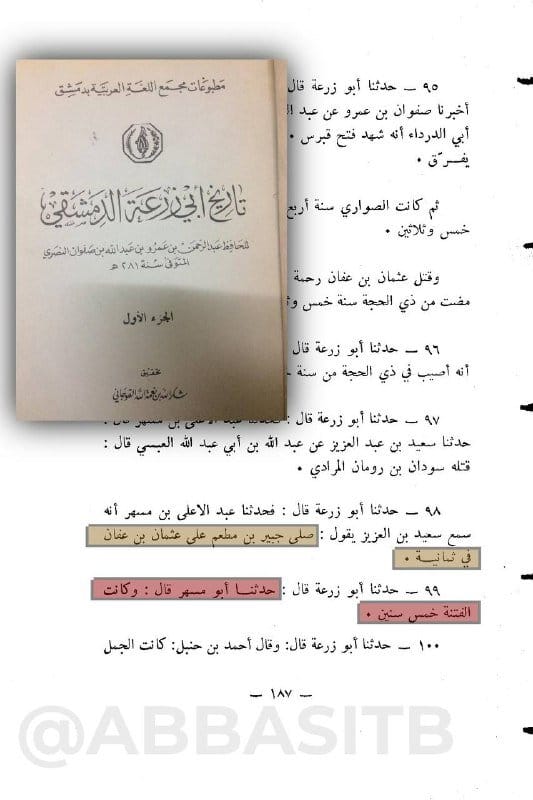 مطبوعات مجمع اللغة العربية بدمشق
تاريخ أبي زرعة الدمشقي
للحافظ عبد الرحمن بن عمرو بن عبد الله بن صفوان النصري
المتوفى سنة ٢٨١ هـ
الجزء الأول
تحقيق
شكر الله بن نعمة الله القوجاني
٩٥ – حدثنا أبو زرعة قال
أخبرنا صفوان بن عمرو عن عبد
أبي الدرداء أنه شهد فتح قبرس •
يفرّق •
ثم كانت الصواري سنة أربع
خمس وثلاثين •
وقتل عثمان بن عفان رحمة
مضت من ذي الحجة سنة خمس
٩٦ – حدثنا أبو زرعة قال
أنه أصيب في ذي الحجة من سنة
٩٧ – حدثنا أبو زرعة قال : عبد الاعلى بن مسهر قال :
حدثنا سعيد بن عبد العزيز عن عبد الله بن أبي عبد الله العبسي قال :
قتله سودان بن رومان المرادي •
٩٨ – حدثنا أبو زرعة قال : فحدثنا عبد الاعلى بن مسهر أنه
سمع سعيد بن العزيز يقول : صلى جبير بن مطعم على عثمان بن عفان
في ثمانية •
٩٩ – حدثنا أبو زرعة قال : حدثنا أبو مسهر قال : وكانت
الفتنة خمس سنين •
١٠٠ – حدثنا أبو زرعة قال: وقال أحمد بن حنبل: كانت الجمل
– ١٨٧ –
@ABBASITB